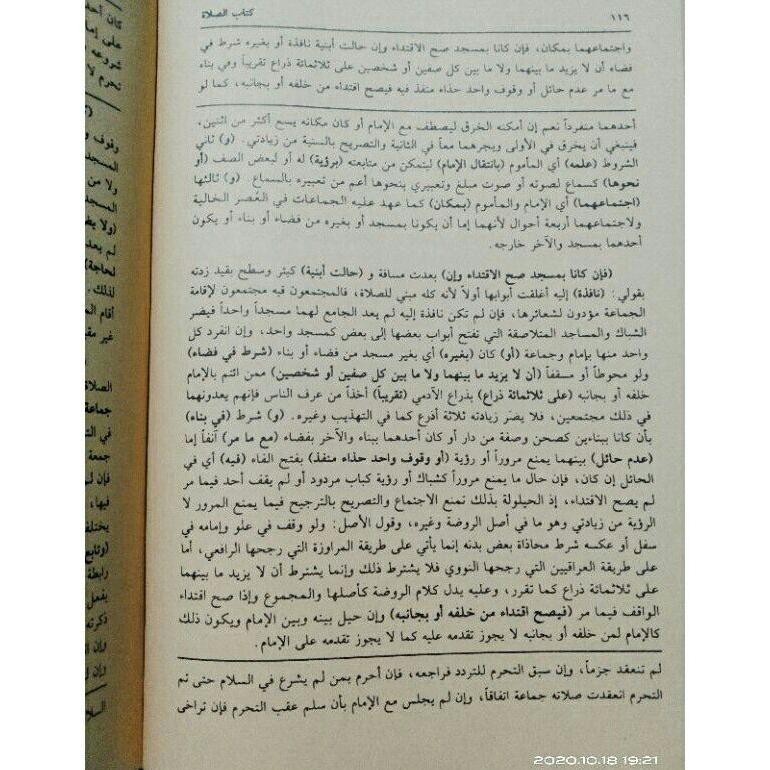 ١١٦
كتاب الصلاة
واجتماعهما بمكان، فإن كانا بمسجد صح الاقتداء وإن حالت أبنية نافذة أو بغيره شرط في
فضاء أن لا يزيد ما بينهما ولا ما بين كل صفين أو شخصين على ثلاثمائة ذراع تقريباً وفي بناء
مع ما مر عدم حائل أو وقوف واحد حذاء منفذ فيه فيصح اقتداء من خلفه أو بجانبه، كما لو
أحدهما منفرداً نعم إن أمكنه الخرق ليصطف مع الإمام أو كان مكانه يسع أكثر من اثنين،
فينبغي أن يخرق في الأولى ويجرهما معاً في الثانية والتصريح بالسنية من زيادتي. (و) ثاني
الشروط (علمه) أي المأموم (بانتقال الإمام) ليتمكن من متابعته (برؤية) له أو لبعض الصف (أو
نحوها) كسماع لصوته أو صوت مبلغ وتعبيري بنحوها أعم من تعبيره بالسماع. (و) ثالثها
(اجتماعهما) أي الإمام والمأموم (بمكان) كما عهد عليه الجماعات في العُصر الخالية
ولاجتماعهما أربعة أحوال لأنهما إما أن يكونا بمسجد أو بغيره من فضاء أو بناء أو يكون
أحدهما بمسجد والآخر خارجه.
(فإن كانا بمسجد صح الاقتداء وإن) بعدت مسافة و (حالت أبنية) كبئر وسطح بقيد زدته
بقولي: (نافذة) إليه أغلقت أبوابها أولاً لأنه كله مبني للصلاة، فالمجتمعون فيه مجتمعون لإقامة
الجماعة مؤدون لشعائرها، فإن لم تكن نافذة إليه لم يعد الجامع لهما مسجداً واحداً فيضر
الشباك والمساجد المتلاصقة التي تفتح أبواب بعضها إلى بعض كمسجد واحد، وإن انفرد كل
واحد منها بإمام وجماعة (أو) كان (بغيره) أي بغير مسجد من فضاء أو بناء (شرط في فضاء)
ولو محوطاً أو مسقفاً (أن لا يزيد ما بينهما ولا ما بين كل صفين أو شخصين) ممن ائتم بالإمام
خلفه أو بجانبه (على ثلاثمائة ذراع) بذراع الآدمي (تقريباً) أخذاً من عرف الناس فإنهم يعدونهما
في ذلك مجتمعين، فلا يضر زيادته ثلاثة أذرع كما في التهذيب وغيره. (و) شرط (في بناء)
بأن كانا ببناءين كصحن وصفة من دار أو كان أحدهما ببناء والآخر بفضاء (مع ما مر) آنفاً إما
(عدم حائل) بينهما يمنع مروراً أو رؤية (أو وقوف واحد حذاء منفذ) بفتح الفاء (فيه) أي في
الحائل إن كان، فإن حال ما يمنع مروراً كشباك أو رؤية كباب مردود أو لم يقف أحد فيما مر
لم يصح الاقتداء، إذ الحيلولة بذلك تمنع الاجتماع والتصريح بالترجيح فيما يمنع المرور لا
الرؤية من زيادتي وهو ما في أصل الروضة وغيره، وقول الأصل: ولو وقف في علو وإمامه في
سفل أو عكسه شرط محاذاة بعض بدنه إنما يأتي على طريقة المراوزة التي رجحها الرافعي، أما
على طريقة العراقيين التي رجحها النووي فلا يشترط ذلك وإنما يشترط أن لا يزيد ما بينهما
على ثلاثمائة ذراع كما تقرر، وعليه يدل كلام الروضة كأصلها والمجموع وإذا صح اقتداء
الواقف فيما مر (فيصح اقتداء من خلفه أو بجانبه) وإن حيل بينه وبين الإمام ويكون ذلك
كالإمام لمن خلفه أو بجانبه لا يجوز تقدمه عليه كما لا يجوز تقدمه على الإمام.
لم تنعقد جزماً، وإن سبق التحرم للتردد فراجعه، فإن أحرم بمن لم يشرع في السلام حتى تم
التحرم انعقدت صلاته جماعة اتفاقاً، وإن لم يجلس مع الإمام بأن سلم عقب التحرم فإن تراخى
2020.10.18 19:21